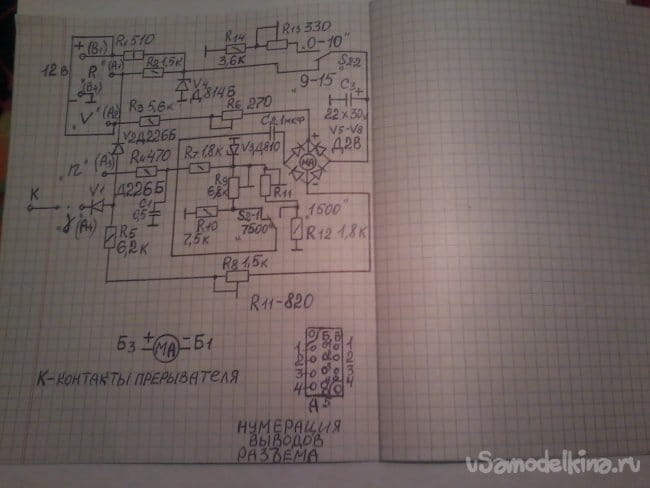 + (В1) R1 510
12 В
"R" (А1) R2 1,5к
R14 3,6К
R13 330
"0-10"
S2-2
"9-15"
V4 Д814Б
(Б4)
"V" (А2) R3 5,6к
R6 270
C2 1мкф
C3 22×30v
V5-V8 Д2В
+
МА
-
V2 Д226Б
"П" (А3) R4 470
R7 1,8к
V3 Д810
К
V1 Д226Б
(А4)
C1 0,5
R5 6,2к
R9 6,8к
R11
R10 7,5к
S2-1
"7500"
"1500"
R12 1,8к
R8 1,5к
R11-820
Б3 + МА - Б1
К-КОНТАКТЫ ПРЕРЫВАТЕЛЯ
1 1
2 2
3 3
4 4
НУМЕРАЦИЯ
ВЫВОДОВ
РАЗЪЕМА
vSamodelkina.ru